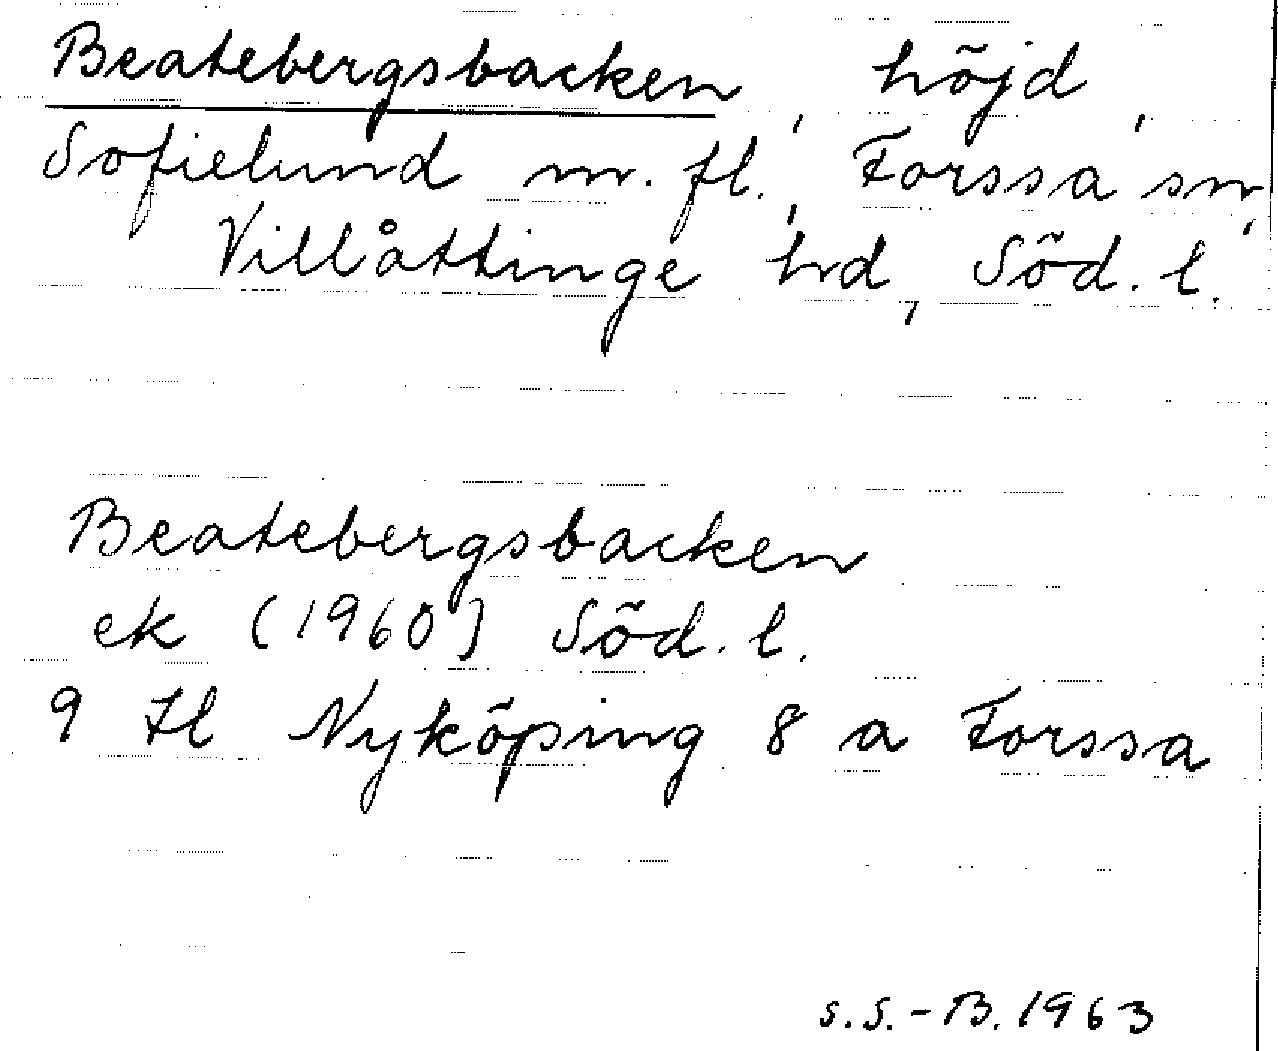 Beatebergsbacken, höjd,
Sofielund m. fl., Forssa sn,
Villåttinge hd, Söd. l.
Beatebergsbacken
ek (1960) Söd. l.
9 Hl Nyköping 8 a Forssa
S.S.-B. 1963